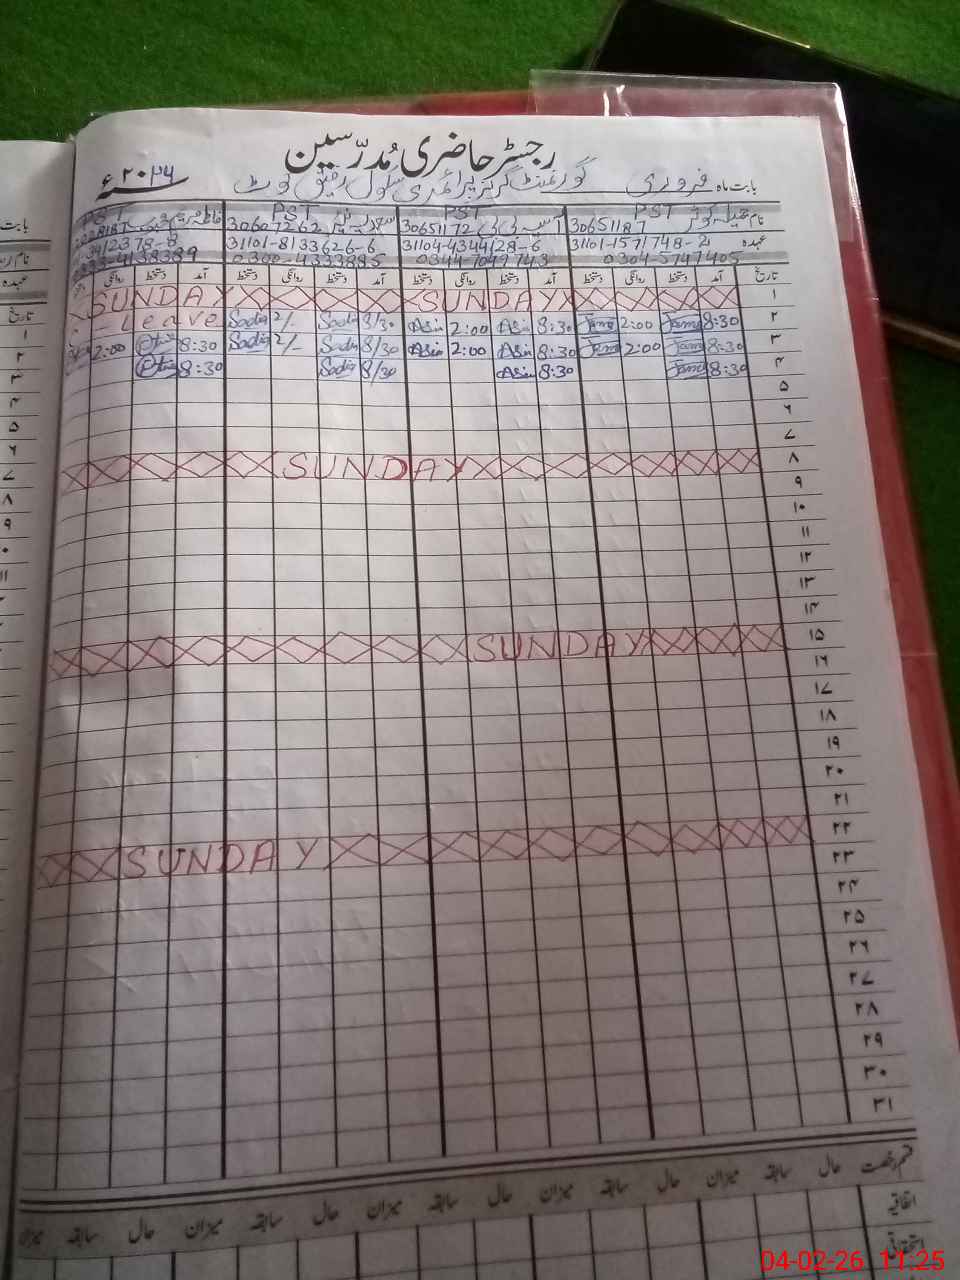 رجسٹر حاضری مُدرّسین
بابت ماہ فروری گورنمنٹ گرلز پرائمری سکول ۲۰۲۶ء
نام جمیلہ کوثر PST PST PST PST
30651187 30651172 30607262
عہدہ 31101-1571748-2 31104-4344128-6 31101-813362-6-6
0304-5747405 0344-7049743 0300-4333885
تاریخ آمد دستخط روانگی دستخط آمد دستخط روانگی دستخط آمد دستخط روانگی دستخط آمد دستخط روانگی
۱ SUNDAY SUNDAY
۲ 8:30 Jami 2:00 Jami 8:30 Asia 2:00 Asia 8/30 Sadia 2/- Sadia Leave
۳ 8:30 Jami 2:00 Jami 8:30 Asia 2:00 Asia 8/30 Sadia 2/- Sadia 8:30 2:00
۴ 8:30 Jami 8:30 Asia 8/30 Sadia 8:30
۵
۶
۷
۸ SUNDAY
۹
۱۰
۱۱
۱۲
۱۳
۱۴
۱۵ SUNDAY
۱۶
۱۷
۱۸
۱۹
۲۰
۲۱
۲۲ SUNDAY
۲۳
۲۴
۲۵
۲۶
۲۷
۲۸
۲۹
۳۰
۳۱
قسم رخصت حال سابقہ میزان حال سابقہ میزان حال سابقہ میزان حال سابقہ میزان
اتفاقیہ
استحقاقی
بابت
نام
عہدہ
تاریخ
۱
۲
۳
۴
۵
۶
۷
۸
۹
04-02-26 11:25